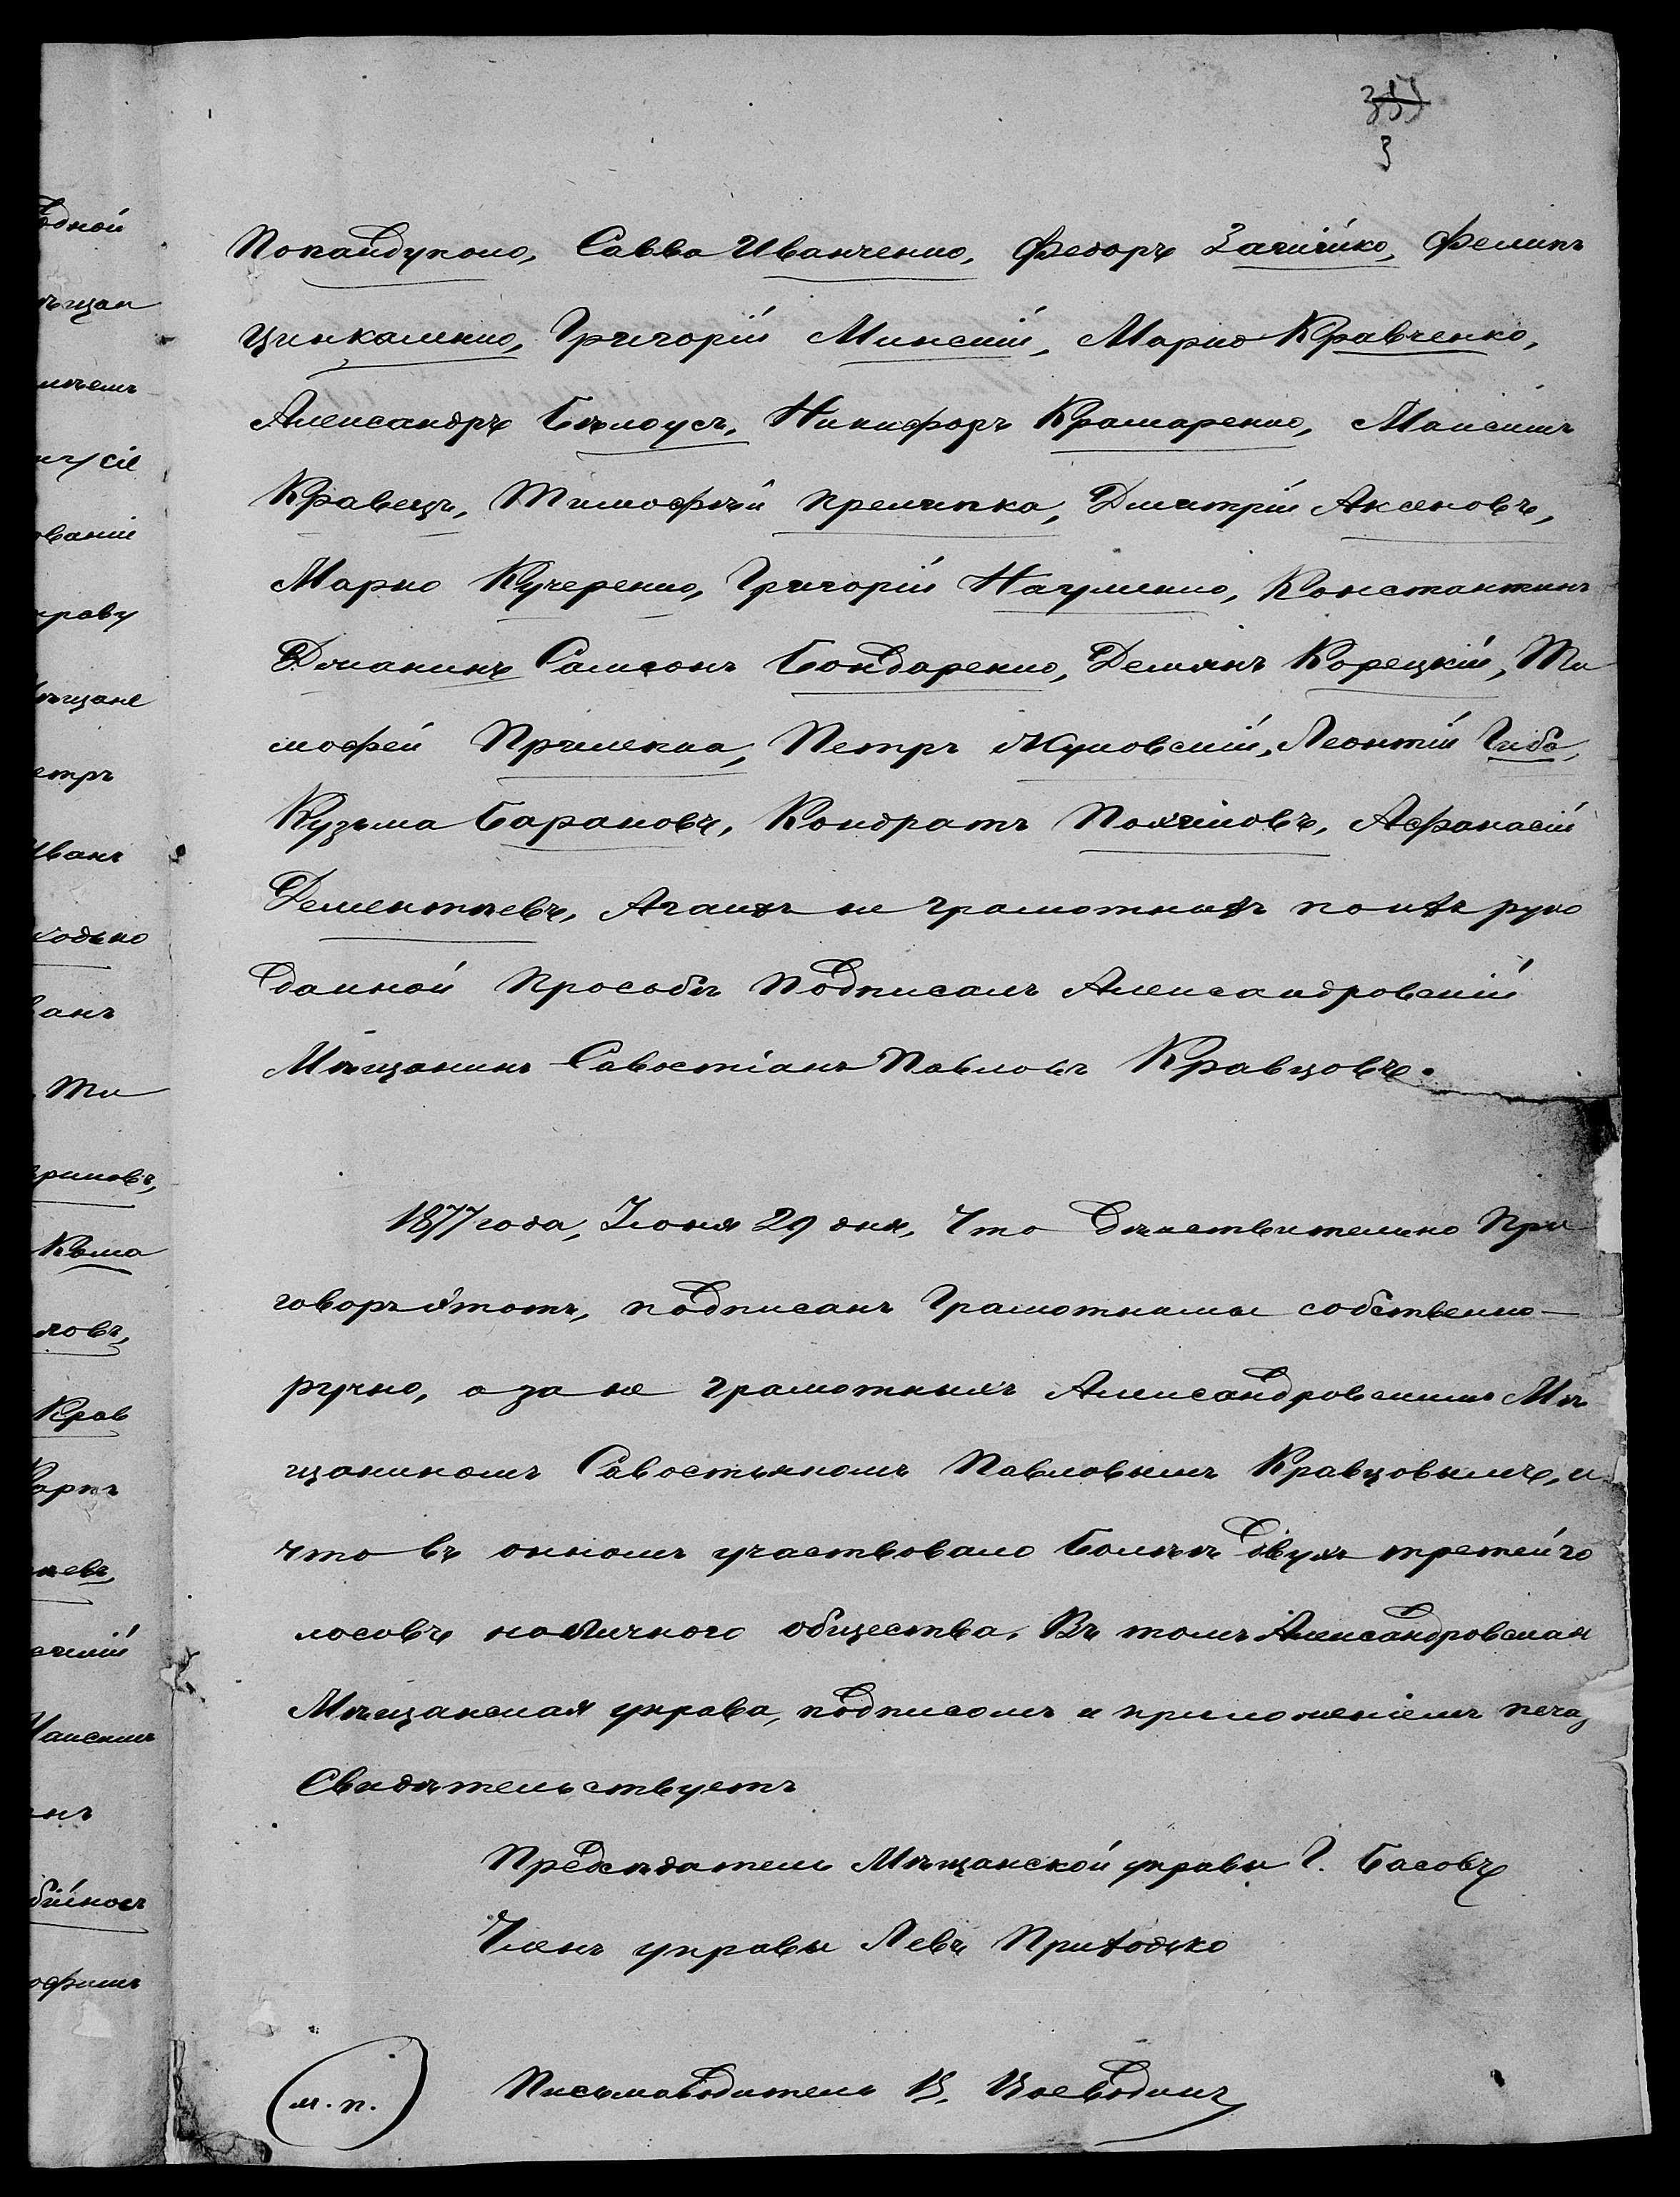 3
Попандуполо, Савва Иванченко, Федоръ Зачичико, Фелипъ
Цинкаленко, Григорій Минскій, Марко Кравченко,
Александръ Бѣлоусъ, Никифоръ Крамаренко, Максимъ
Кравецъ, Тимофѣй Прелипка, Дмитрій Аксеновъ,
Марко Кучеренко, Григорій Науменко, Константинъ
Самсонъ Бондаренко, Демянъ Корецкій, Ти
мофей Петръ Жуковскій, Леонтій
Кузьма Барановъ, Кондратъ Афанасій
Дементьевъ, А за ихъ не грамотныхъ по ихъ руко
данной прособѣ подписалъ Александровскій
Мѣщанинъ Савостіанъ Павловъ Кравцовъ.
1877 года, Іюня 29 дня, Что Дѣйствительно При
говоръ этотъ, подписанъ Грамотными собственно-
ручно, а за не грамотныхъ Александровскимъ Мѣ
щаниномъ Савостьяномъ Павловымъ Кравцовымъ, и
что въ ономъ участвовало Болѣѣ двухъ третей го
лосовъ наличного общества. Въ томъ Александровская
Мѣщанская управа, подписомъ и приложеніемъ печа
Свидѣтельствуетъ
Предсѣдатель Мѣщанской управы Г. Басовъ
Членъ управы Левъ Приходько
(м.п.) Письмаводитель В. Воеводинъ
одной
мѣщан
сіе
ованіе
праву
мѣщане
етръ
Иванъ
ходько
ванъ
Ти
Кома
ловъ,
Крав
Карпъ
невъ,
Максимъ
нъ
офимъ